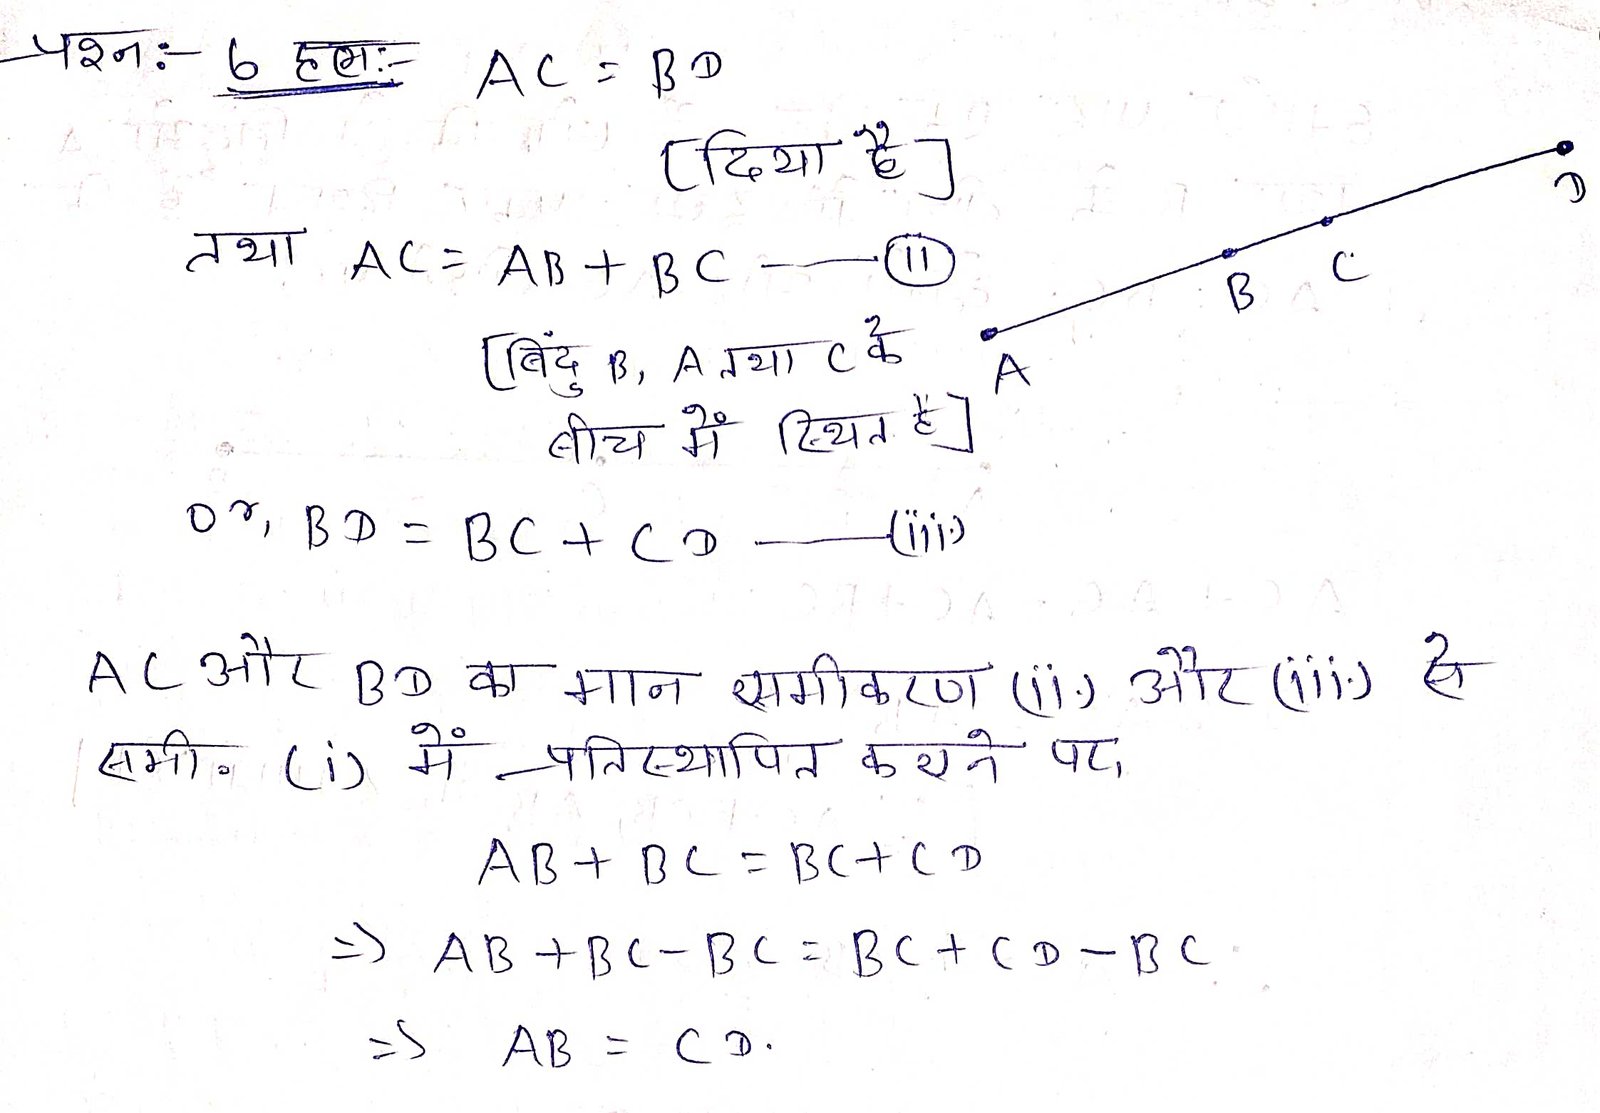 प्रश्न:- 6 हल:- AC = BD
[दिया है]
तथा AC = AB + BC —— (ii)
[बिंदु B, A तथा C के
बीच में स्थित है]
or, BD = BC + CD —— (iii)
A
B
C
D
AC और BD का मान समीकरण (ii) और (iii) से
समी. (i) में प्रतिस्थापित करने पर,
AB + BC = BC + CD
=> AB + BC - BC = BC + CD - BC
=> AB = CD.